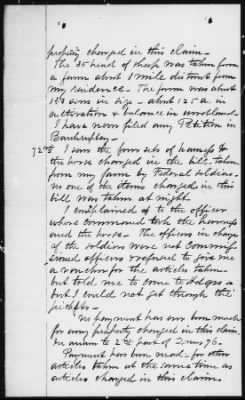 property charged in this claim -
The 35 head of sheep was taken from
a farm about 1 mile distant from
my residence - The farm was about
150 acres in size - about 125 a. in
cultivation & balance in woodland.
I have never filed any Petition in
Bankruptcy -
72nd I saw the four sets of harness &
the horse charged in the bill taken
from my farm by Federal soldiers.
no one of the items charged in this
bill was taken at night.
I complained of to the officer
whose command took the harness
and the horse - The officers in charge
of the soldiers were not Commis
sioned officers & refused to give me
a voucher for the articles taken -
but told me to come to Hdqrs -
but I could not get through the
pickets -
No payment has ever been made
for any property charged in this claim.
In answer to 2nd part of 76 -
Payment has been made for other
articles taken at the same time as
articles charged in this claim